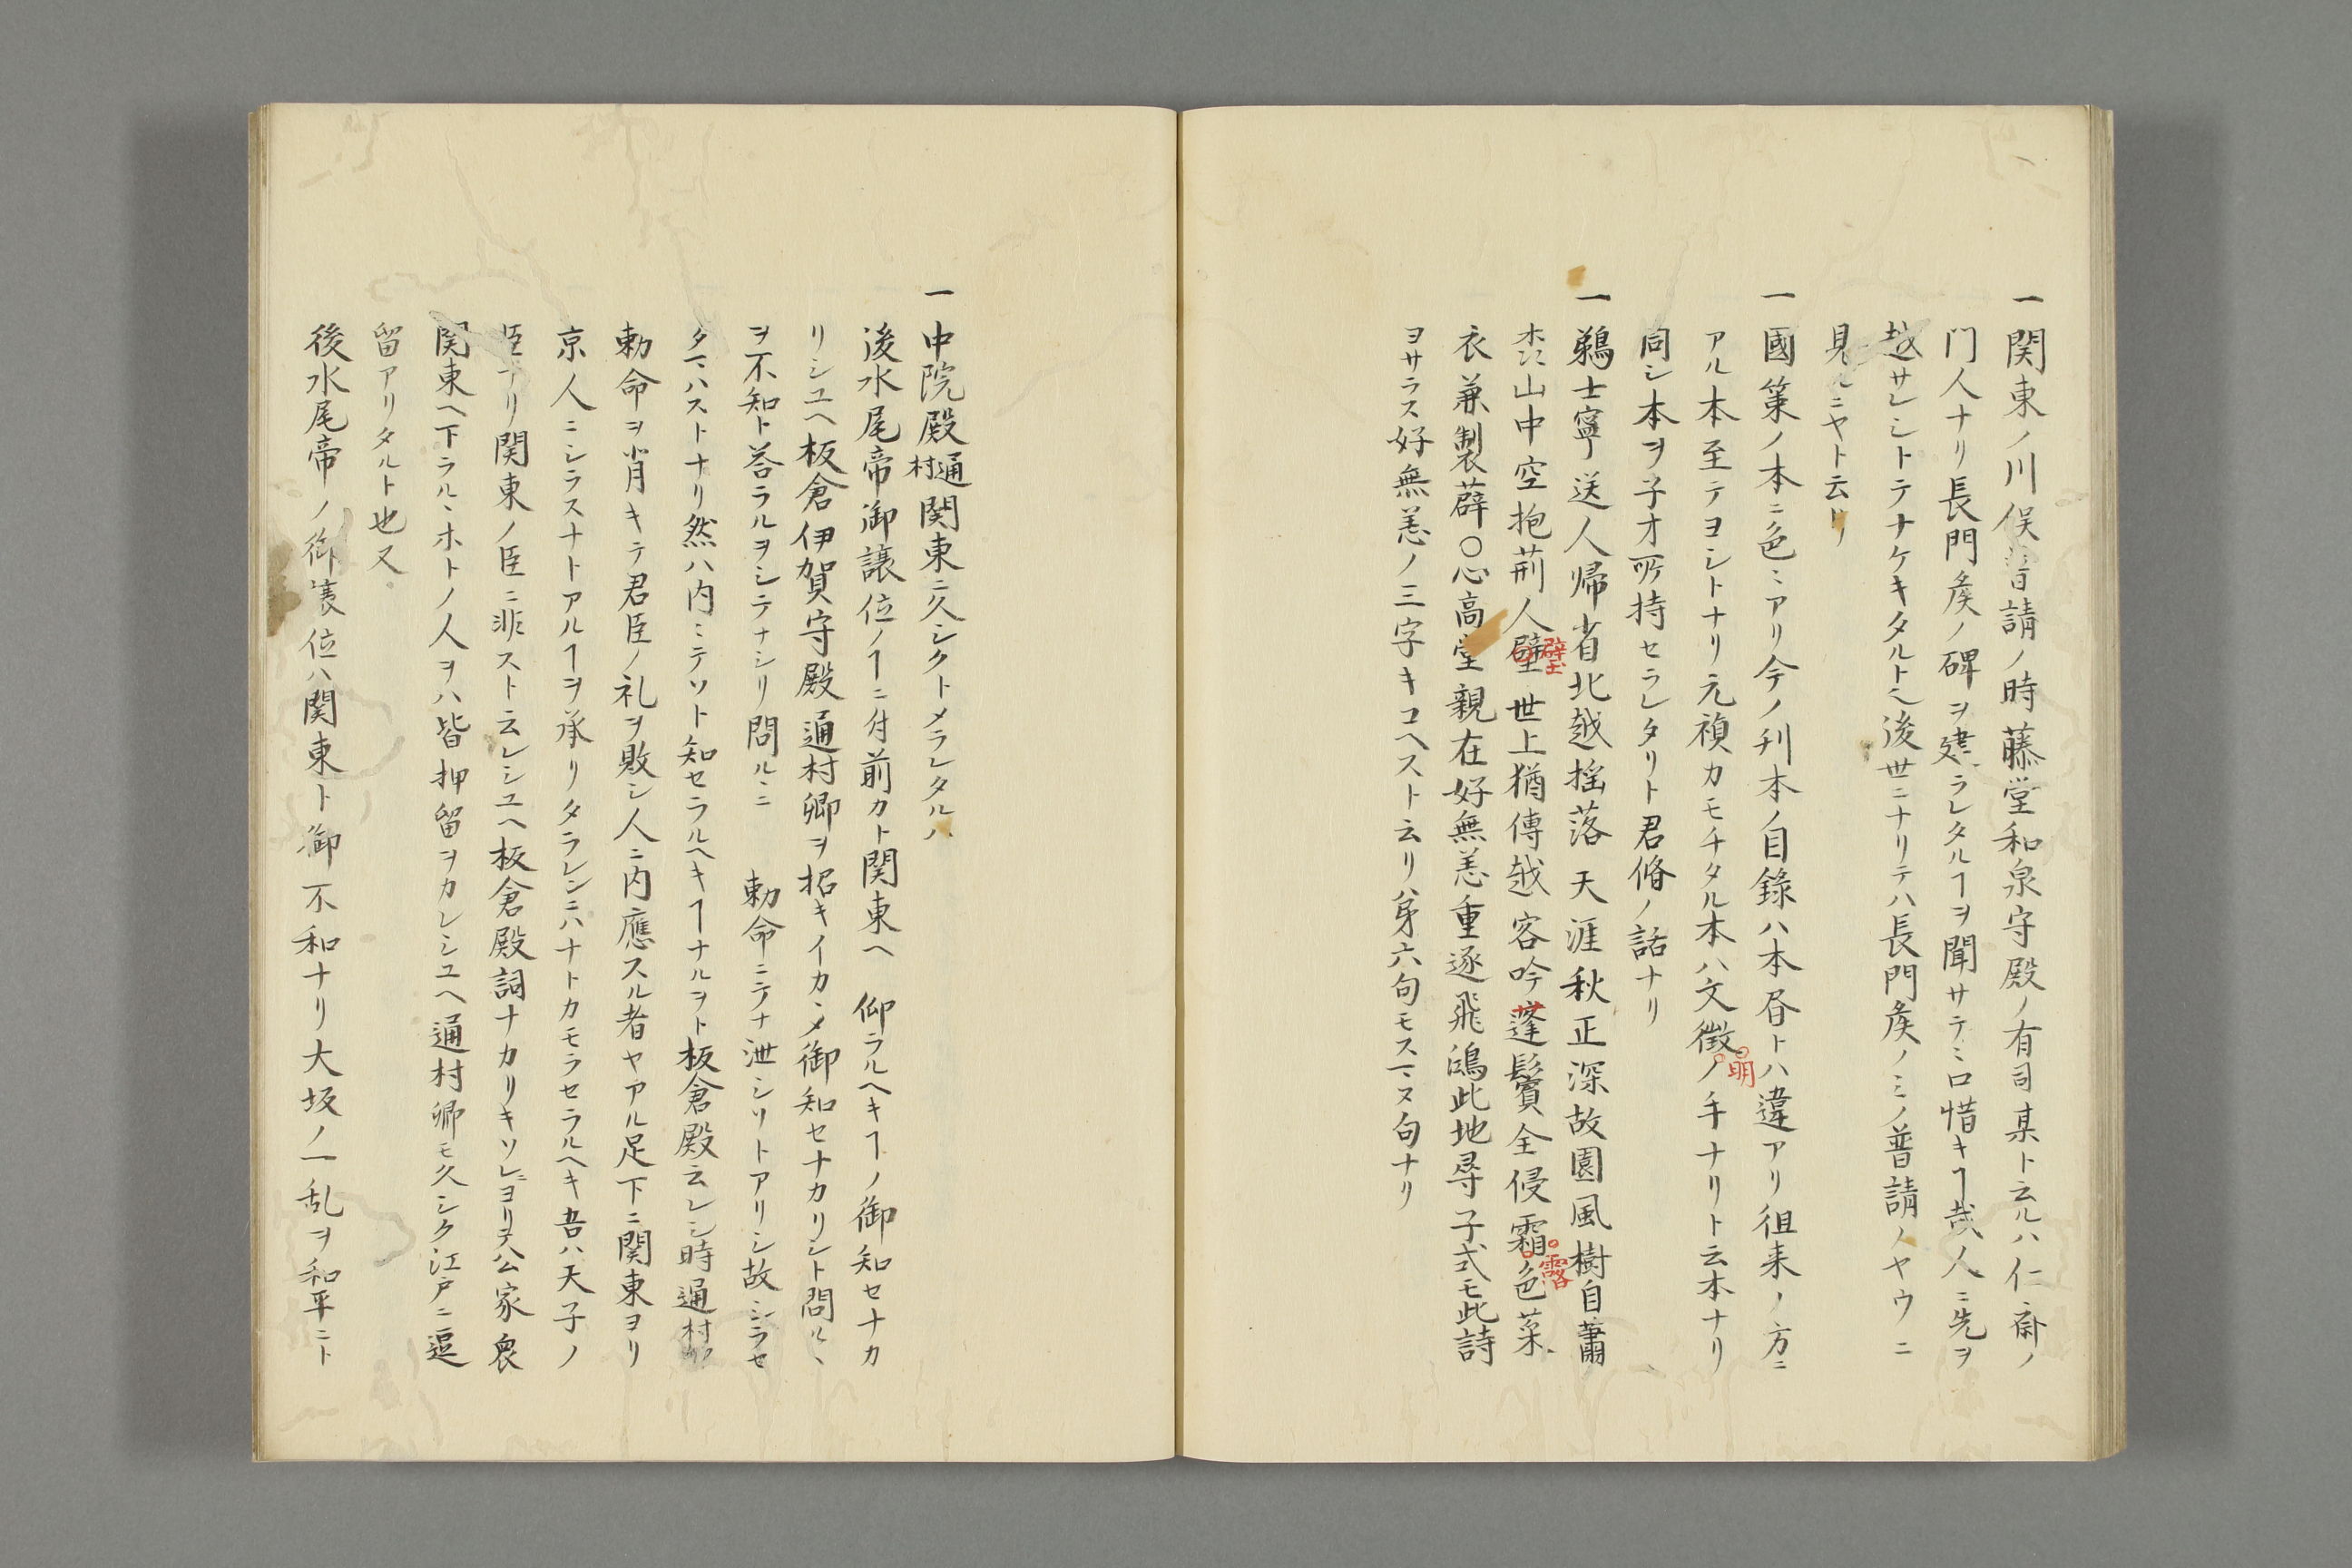 一関東ノ川俣普請ノ時藤堂和泉守殿ノ有司某ト云ルハ仁斎ノ
門人ナリ長門矦ノ碑ヲ建ラレタルヿヲ聞サテミ口惜キヿ哉人ニ先ヲ
越サレシトテナケキタルト也後世ニナリテハ長門矦ノミノ普請ノヤウニ
見ルニヤト云リ
一國策ノ本ニ色ミアリ今ノ刋本ノ目錄ハ本唇トハ違アリ徂来ノ方ニ
アル本至テヨシトナリ元禎カモチタル本ハ文徴明ノ手ナリト云本ナリ
同シ本ヲ子才所持セラレタリト君脩ノ話ナリ
一鵜士寧送人帰省北越揺落天涯秋正深故園風樹自蕭
森山中空抱荊人壁璧世上猶傳越客吟蓬鬢全侵霜露色菜
衣兼製薜〇心高堂親在好無恙重逐飛鴻此地尋子式モ此詩
ヨサラス好無恙ノ三字キコヘスト云リ第六句モスマヌ句ナリ
一中院殿通村関東ニ久シクトメラレタルハ
後水尾帝御譲位ノヿニ付前カト関東ヘ 仰ラルヘキヿノ御知セナカ
リシユヘ板倉伊賀守殿通村卿ヲ招キイカヽメ御知セナカリシト問ルヽ
ヲ不知ト荅ラルヲシテナシリ問ルニ 勅命ニテナ泄シソトアリシ故シラセ
タマハストナリ然ハ内ミテソト知セラルヘキヿナルヲト板倉殿云レシ時通村卿
勅命ヲ背キテ君臣ノ礼ヲ敗シ人ニ内應スル者ヤアル足下ニ関東ヨリ
京人ニシラスナトアルヿヲ承リタラレンニハナトカモラセラルヘキ吾ハ天子ノ
臣ナリ関東ノ臣ニ非スト云レシユヘ板倉殿詞ナカリキソレヨリテ公家衆
関東ヘ下ラルヽホトノ人ヲハ皆押留ヲカレシユヘ通村卿モ久シク江戸ニ逗
留アリタルト也又
後水尾帝ノ御譲位ハ関東ト御不和ナリ大坂ノ一乱ヲ和平ニト